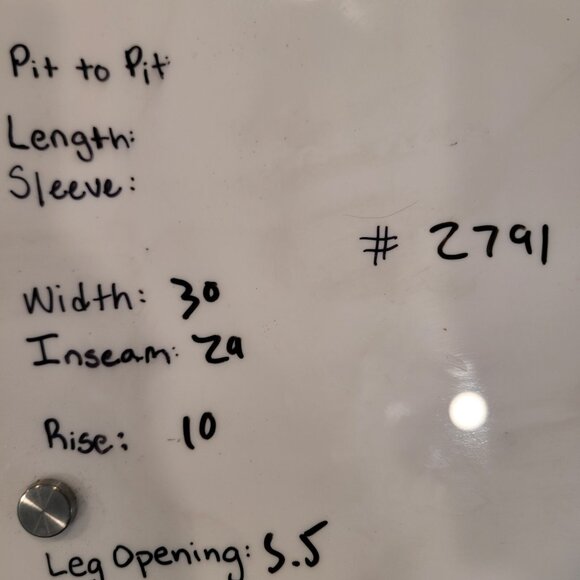 Pit to Pit:
Length:
Sleeve:
# 2791
Width: 30
Inseam: 29
Rise: 10
Leg Opening: 5.5